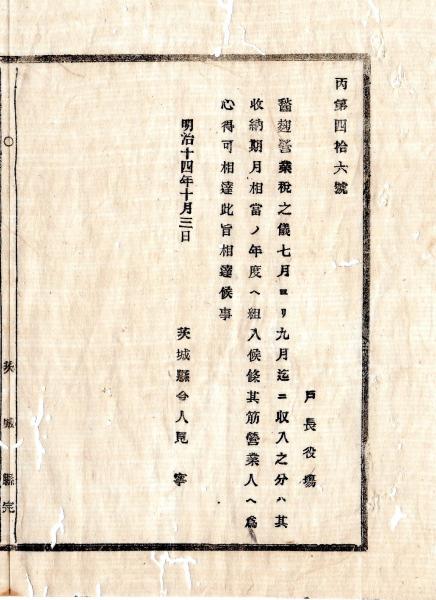 丙第四拾六號
戸長役場
醤麹營業稅之儀七月ヨリ九月迄ニ収入之分ハ其
收納期月相當ノ年度ヘ組入候條其筋營業人ヘ爲
心得可相達此旨相達候事
明治十四年十月三日
茨城縣令人見寧
茨城縣